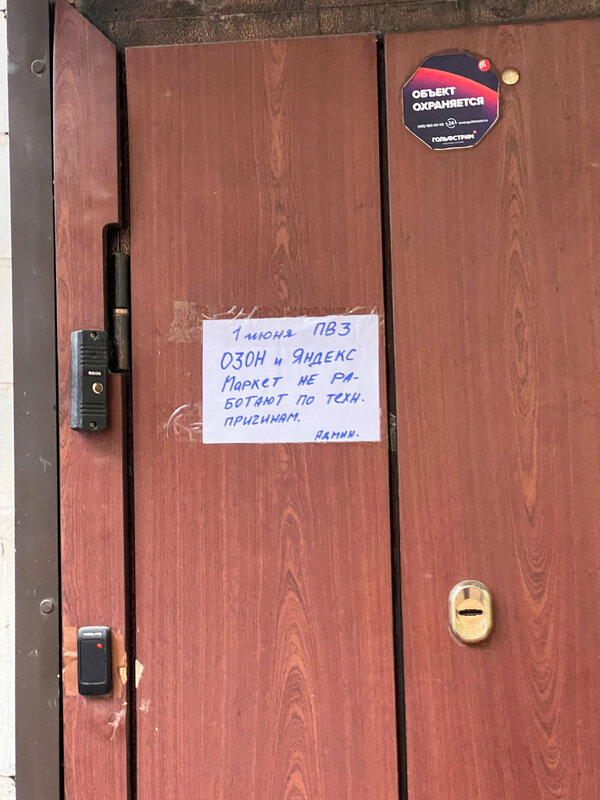 ОБЪЕКТ
ОХРАНЯЕТСЯ
24
ГОЛЬФСТРИМ
1 июня ПВЗ
ОЗОН и ЯНДЕКС
Маркет не РА-
БОТАЮТ ПО ТЕХН.
ПРИЧИНАМ.
Админ.